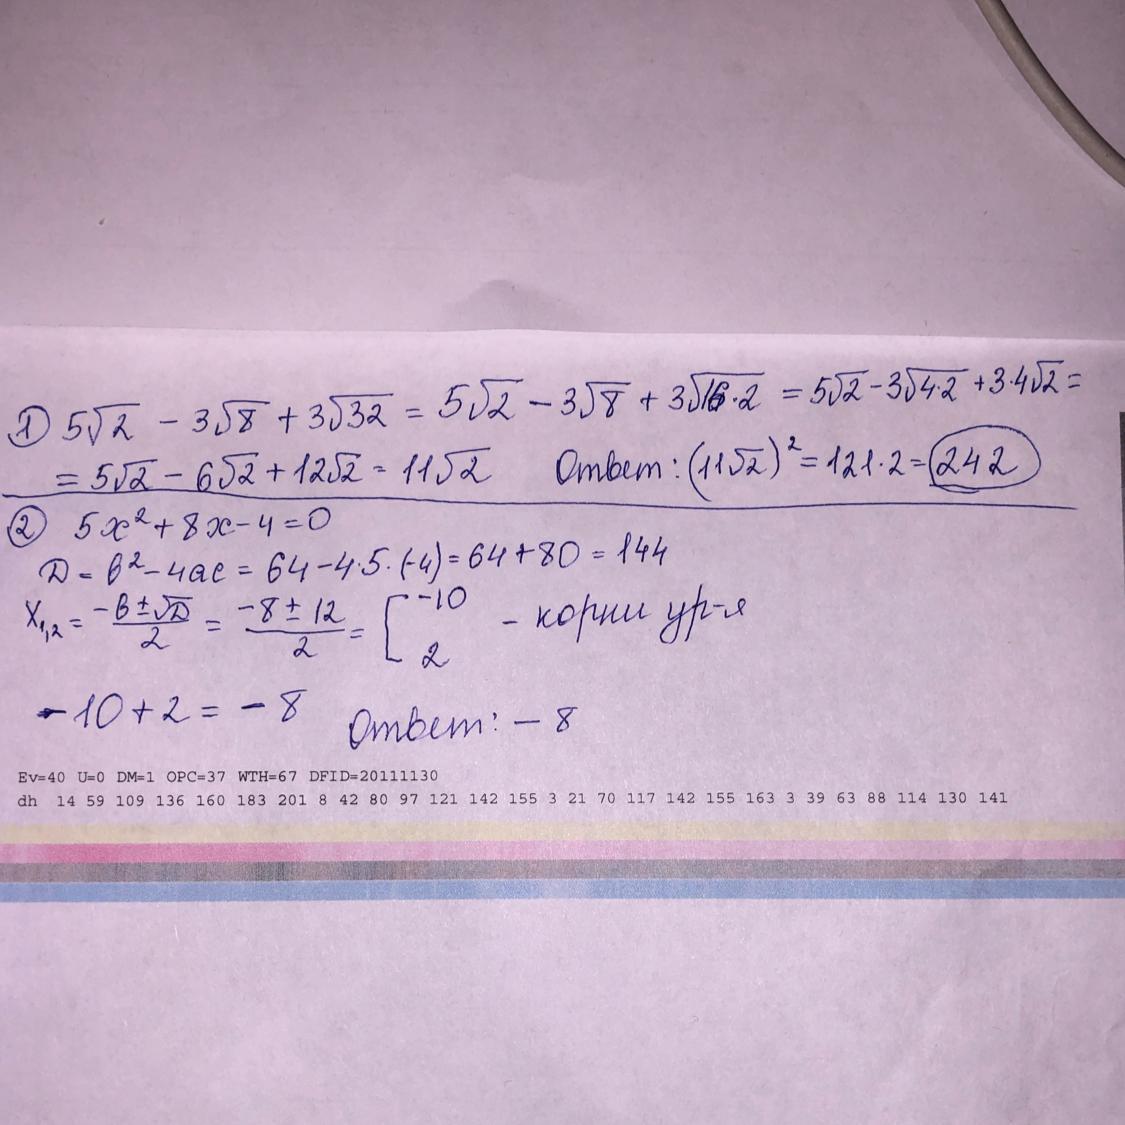 1) 5√2 − 3√8 + 3√32 = 5√2 − 3√8 + 3√16·2 = 5√2 − 3√4·2 + 3·4√2 =
= 5√2 − 6√2 + 12√2 = 11√2 Ответ: (11√2)² = 121·2 = 242
2) 5x² + 8x − 4 = 0
D = b² − 4ac = 64 − 4·5·(−4) = 64 + 80 = 144
X₁,₂ = (−b ± √D)/2 = (−8 ± 12)/2 = [−10 2 − корни ур-я
−10 + 2 = −8 Ответ: −8
Ev=40 U=0 DM=1 OPC=37 WTH=67 DFID=20111130
dh 14 59 109 136 160 183 201 8 42 80 97 121 142 155 3 21 70 117 142 155 163 3 39 63 88 114 130 141